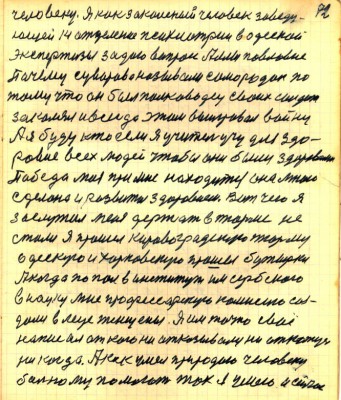 72
человеку. Я как законений человек заведу-
ющей 14 отделение психиатрии в одеской
экспертизы задаю вопрос Алли повловне
Почему суворова называли самородак по
тому что он был полководец своих солдат
закалял и всегда этом выигровал войну
А я буду кто если я учител учу для здо-
ровие всех людей чтобы они были здоровыми
Победа моя при мне находится она мною
сделана и розвита здоровьем. Вот чего я
заслужил меня держат в тюрме не
стали Я прошел кировоградскую тюрму
одескую и Харковскую прошел бутырки
А когда попол в институт им сербского
в науку мне профессорскую комиссию соз-
дали в лице женщены. Я им точно своё
написал от кого ни отказывали ни откожус
никогда. А как умел природою человеку
балному помогат так я умею и